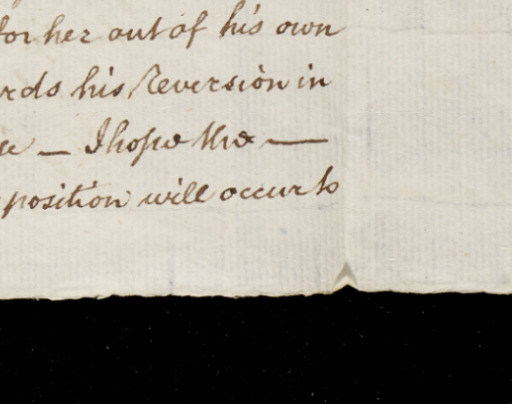 for her out of his own
rds his Reversion in
— I hope the —
position will occur to